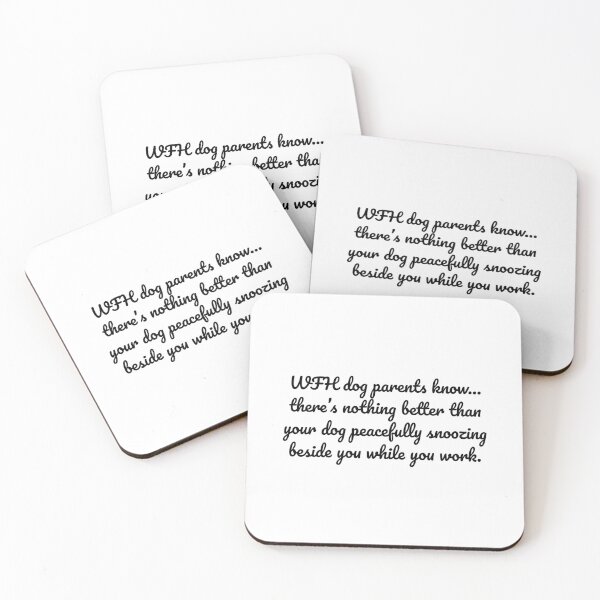 WFH dog parents know...
there's nothing better tha
your dog peacefully snoozi
you wor
WFH dog parents know...
there's nothing better than
your dog peacefully snoozing
beside you while you work.
WFH dog parents know...
there's nothing better than
your dog peacefully snoozing
beside you while you
WFH dog parents know...
there's nothing better than
your dog peacefully snoozing
beside you while you work.